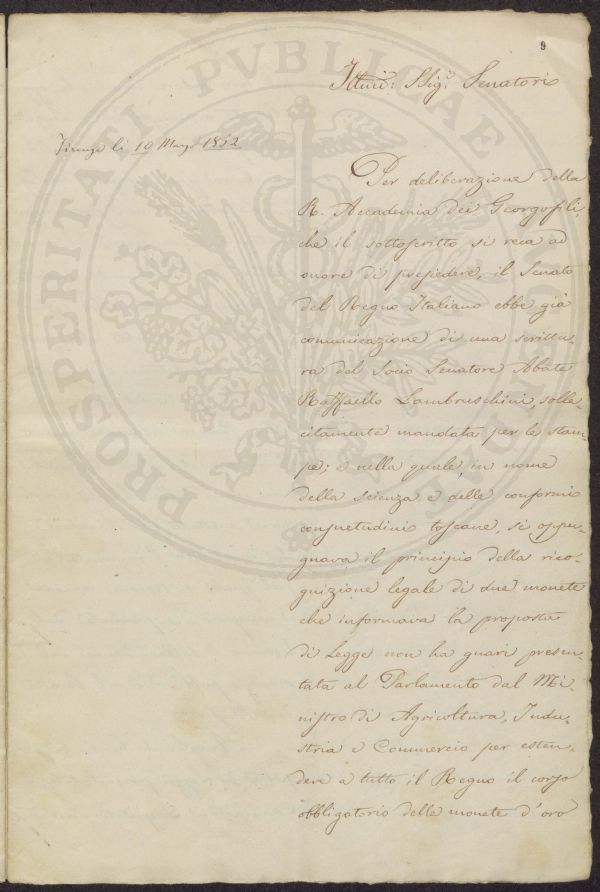 9
Illmi: SSigri Senatori
Firenze li 10 Marzo 1862
Per deliberazione della
R. Accademia dei Georgofili,
che il sottoscritto si reca ad
onore di presiedere, il Senato
del Regno Italiano ebbe già
comunicazione di una scrittu-
ra del Socio Senatore Abate
Raffaello Lambruschini, solle-
citamente mandata per le stam-
pe; e nella quale, in nome
della scienza e delle conformi
consuetudini toscane, si oppu-
gnava il principio della rico-
gnizione legale di due monete
che informava la proposta
di Legge non ha guari presen-
tata al Parlamento dal Mi-
nistro di Agricoltura, Indu-
stria e Commercio per esten-
dere a tutto il Regno il corso
obbligatorio delle monete d'oro
PROSPERITATI PVBLICAE